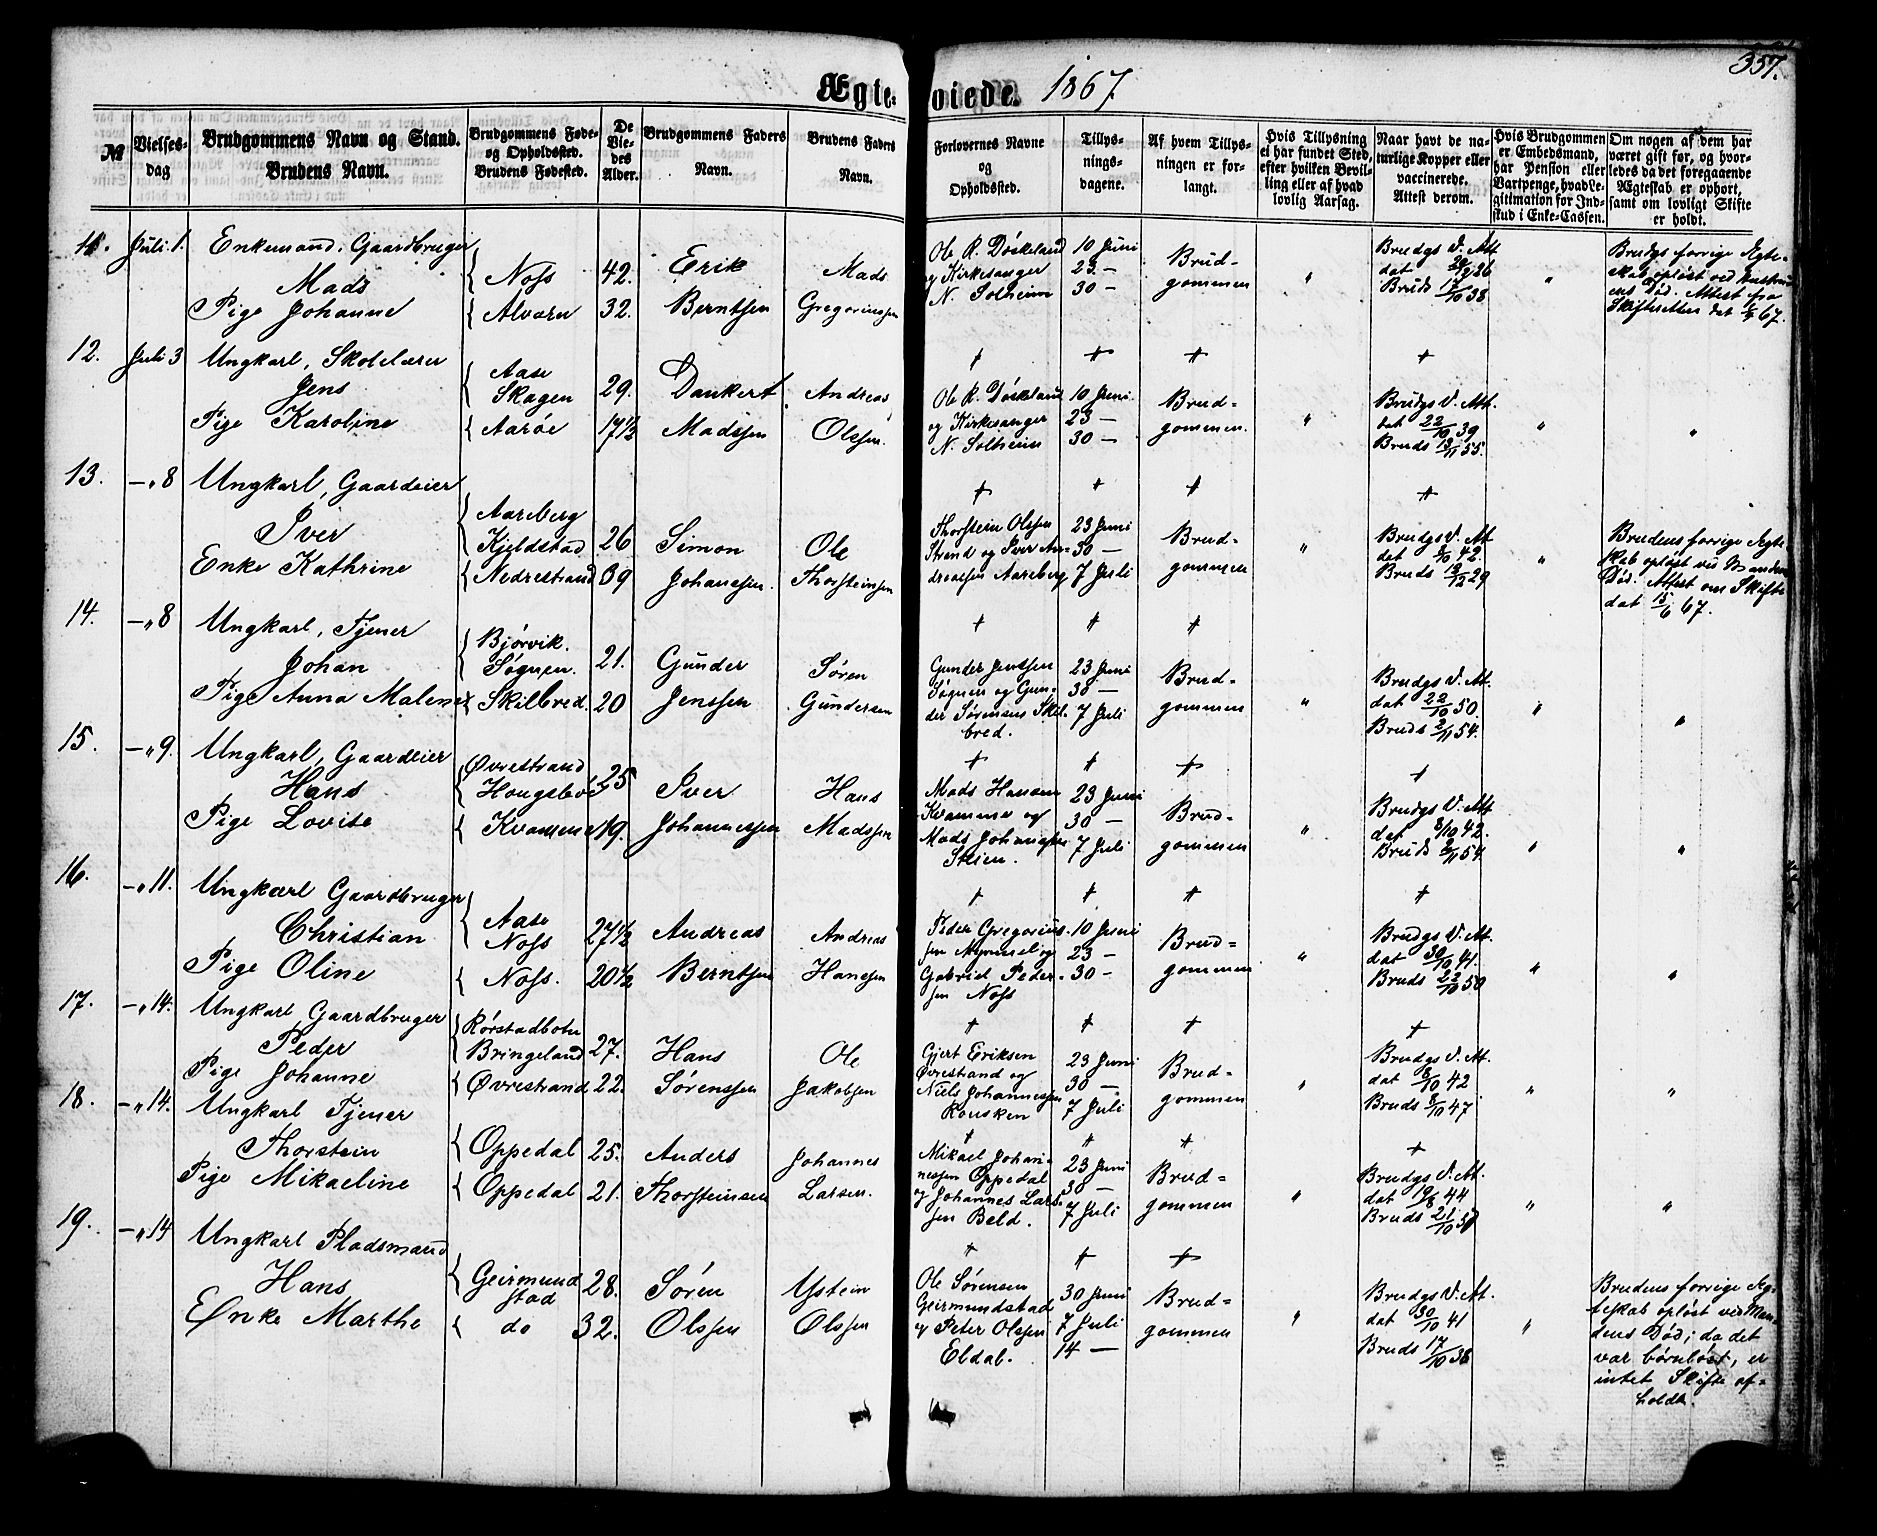 357.
Ægteviede. 1867
№
Vielses-dag
Brudgommens Navn og Stand. Brudens Navn.
Brudgommens Føde- og Opholdssted. Brudens Fødested.
De Viedes Alder.
Brudgommens Faders Navn.
Brudens Faders Navn.
Forlovernes Navne og Opholdssted.
Tillysningsdagene.
Af hvem Tillysningen er forlangt.
Hvis Tillysning ei har fundet Sted, efter hvilken Bevilling eller af hvad lovlig Aarsag.
Naar havt de naturlige Kopper eller vaccinerede. Attest derom.
Hvis Brudgommen er Embedsmand, har Pension eller Vartpenge, hvad Legitimation for Indskud i Enke-Cassen.
Om nogen af dem har været gift før, og hvorledes da det foregaaende Ægteskab er ophørt, samt om lovligt Skifte er holdt.
11. Juli 1. Enkemand, Gaardbruger
Mads { Noss 42. Erik Mads
Pige Johanne { Alværn 32. Berntsen Gregoriussen
Ole R. Døskeland
og Kirkesanger
N. Solheim
10 Juni
23 —
30 —
Brud=
gommen
"
Brudgs V. Att.
dat
Bruds 17/10 38
"
Brudgs forrige Ægte-
skab opløst ved Hustru-
ens Død. Attest fra
Skifteretten dat 67.
12. Juli 3 Ungkarl, Skolelærer
Jens { Aase Skagen 29. Dankert Andreas
Pige Karoline { Aarøe 17½ Madssen Olssen.
Ole R. Døskeland
og Kirkesanger
N. Solheim
10 Juni.
23 —
30 —
Brud=
gommen.
"
Brudgs V. Att.
dat 22/10 39
Bruds 13/11 55.
"
"
13. —"8 Ungkarl, Gaardeier
Iver { Aareberg Kjeldstad 26 Simon Ole
Enke Kathrine { Nedrestrand 39 Johanssen. Thorsteinsen
Thorstein Olssen
Strand og Iver An-
dreassen Aareberg
23 Juni
30 —
7 Juli
Brud=
gommen
"
Brudgs V. Att
dat 8/10 42.
Bruds 13/12 29
"
Brudens forrige Ægte-
skab opløst ved Mandens
Død. Attest om Skifte
dat 15/6 67.
14. —"8 Ungkarl, Tjener
Johan { Bjørvik. Søgnen. 21. Gunder Søren
Pige Anna Malene { Skilbred. 20 Jenssen Gundersen
Gunder Jenssen
Søgnen og Gun-
der Sørensen Skil-
bred.
23 Juni
30 —
7 Juli
Brud=
gommen
"
Brudgs V. At.
dat 22/10 50.
Bruds 2/11 54.
"
"
15. —"9. Ungkarl, Gaardeier
Hans { Øvrestrand 25 Iver Hans
Pige Lovise { Kvamme 19. Johannessen Madssen
Mads Hansen
Kvamme og
Mads
23 Juni
30 —
7 Juli
Brud=
gommen
"
Brudgs V. Att
dat 8/10 42.
Bruds 2/11 54.
"
"
16. —"11. Ungkarl Gaardbruger
Christian { Aase Noss 27½ Andreas Andreas
Pige Oline { Noss. 20½ Berntsen Hanssen
Peder Gregorius-
sen og
Gabriel Peder-
sen Noss
10 Juni
23 —
30 —
Brud=
gommen
"
Brudgs V. At.
dat 30/10 41.
Bruds 22/10 50
"
"
17. —"14. Ungkarl Gaardbruger
Peder { Rørstadbotn Bringeland 27. Hans Ole
Pige Johanne { Øvrestrand 22. Sørenssen Jakobsen
Gjert Eriksen
Øvrestrand og
Niels Johannessen
23 Juni
30 —
7 Juli
Brud=
gommen
"
Brudgs V. At.
dat 8/10 42
Bruds 8/10 47
"
"
18. —"14. Ungkarl Tjener
Thorstein { Oppedal 25. Anders Johannes
Pige Mikaeline { Oppedal 21. Thorsteinsen Larsen.
Mikael Johan-
nessen Oppedal
og Johannes Lars-
sen Beld.
23 Juni
30 —
7 Juli
Brud=
gommen
"
Brudgs V. At.
dat 44
Bruds 21/10
"
"
19. —"14 Ungkarl Pladsmand
Hans { Geirmundstad 28. Søren Ystein
Enke Marthe { do 32. Olssen Olssen
Ole Sørensen
Geirmundstad
og Peter Olssen
Eldal.
30 Juni
7 Juli
14 —
Brud=
gommen
"
Brudgs V. At.
dat 30/10 41
Bruds 17/10 38
"
Brudens forrige Æg-
teskab opløst ved Man-
dens Død; da det
var børnløst, er
intet Skifte af=
holdt.